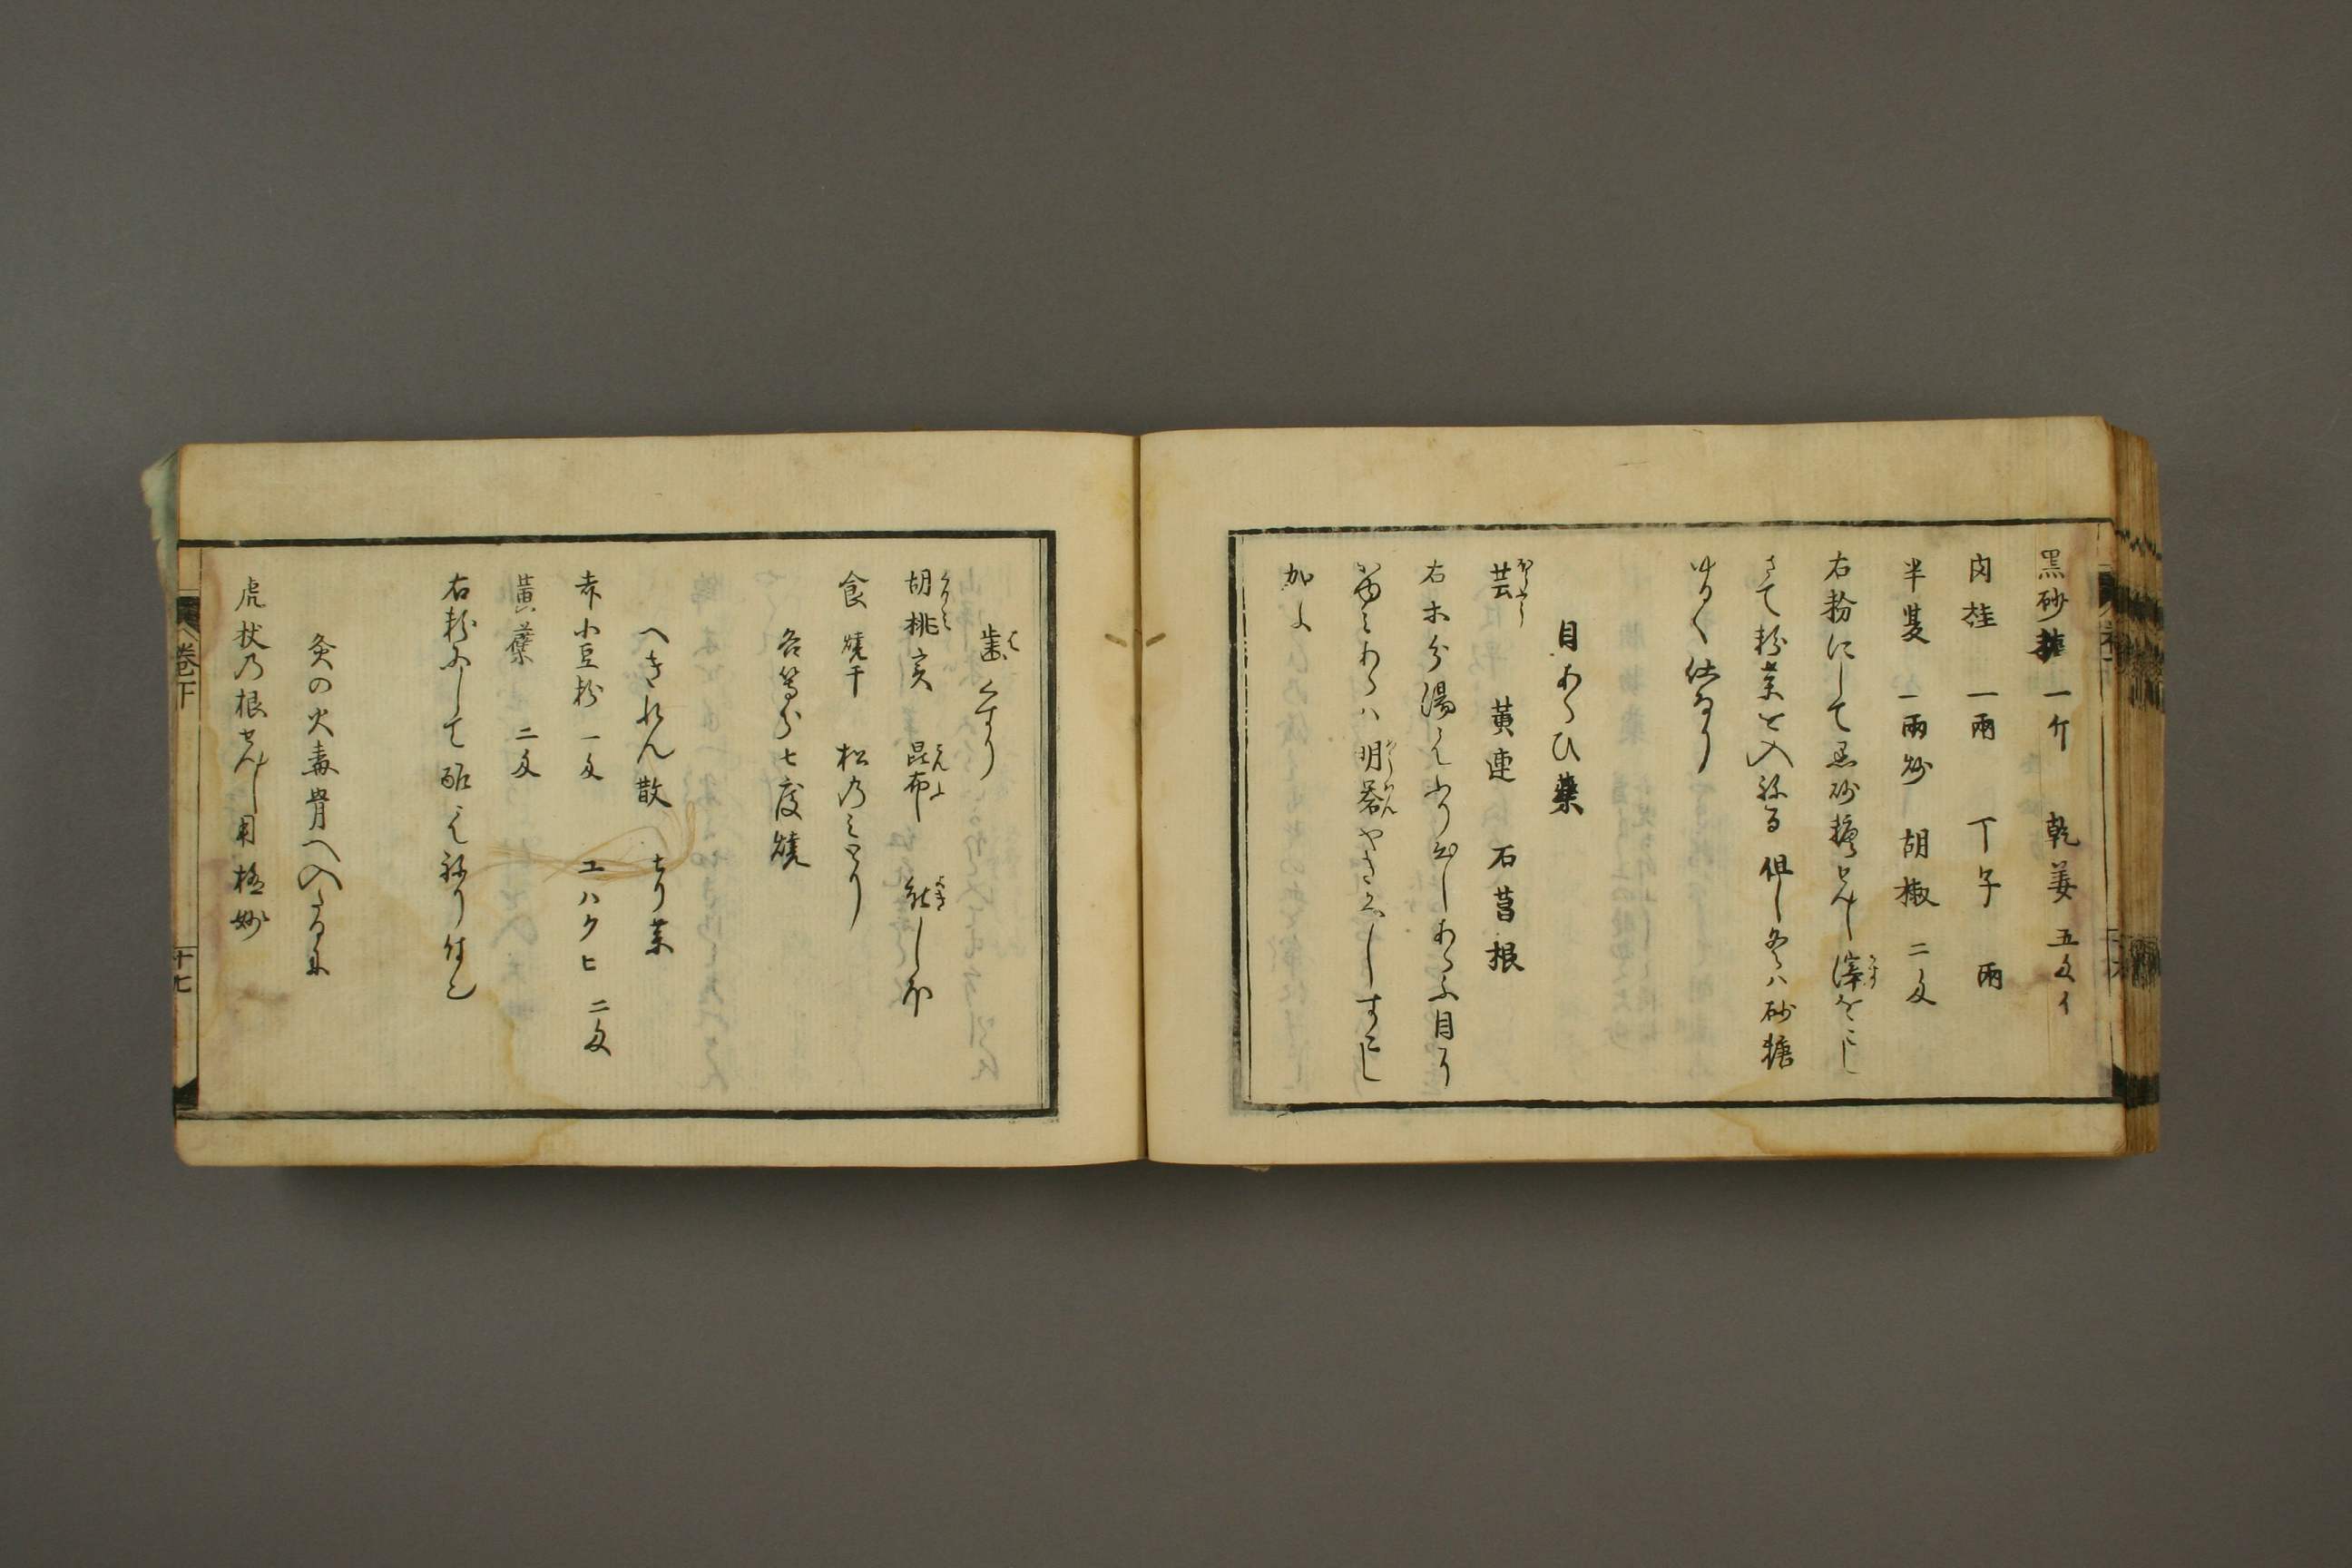 黒砂糖 一斤 乾姜 五匁
肉桂 一兩 丁子 兩
半夏 一兩炒 胡椒 二匁
右粉にして黒砂糖せんし滓をこし
さて粉薬を入ねる 但し冬ハ砂糖
ゆるく仕なり
目あらひ薬
芸 黄連 石菖根
右 分湯にふり出しあらふ目
明礬やきかへしすこし
加
歯くすり
胡桃 実 昆布
食 焼干 松のみとり
各等分七度焼
へきれん散 ちり薬
赤小豆粉 一匁 エハクヒ 二匁
黄蘗 二匁
右粉にして酢にてねり付へし
灸の火毒骨へ入たるに
虎杖乃根せんし用極妙
巻下
十七